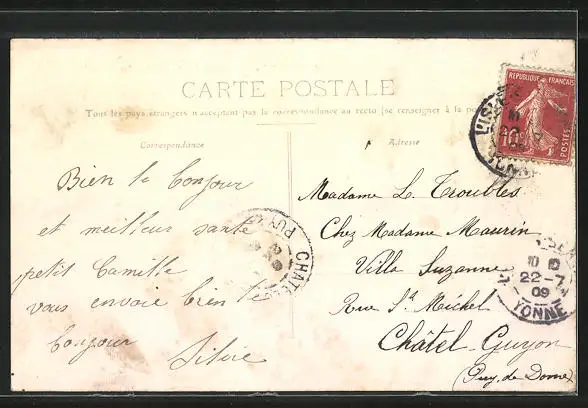 CARTE POSTALE
Tous les pays étrangers n'acceptent pas la correspondance au recto (se renseigner à la po
Correspondance
Adresse
Bien le bonjour
et meilleur santé
petit Camille
vous envoie bien le
bonjour
Silvie
Madame L. Troubles
Chez Madame Maurin
Villa Suzanne
Rue St Michel
Châtel-Guyon
(Puy de Dome)
REPUBLIQUE FRANÇAISE
10c
POSTES
22-7
09
YONNE
CHATEL
PUY